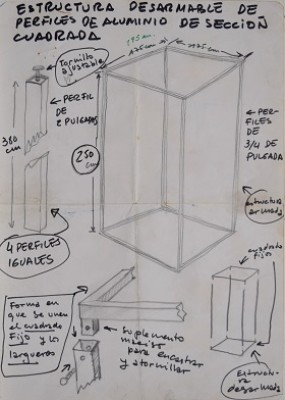 ESTRUCTURA DESARMABLE DE
PERFILES DE ALUMINIO DE SECCION
CUADRADA
Tornillo
ajustable
PERFIL
DE
2 PULGADAS
380
cm
4 PERFILES
IGUALES
125cm
125cm
250
cm
PER-
FILES
DE
3/4 DE
PULGADA
Estructura
armada
Forma en
que se unen
el cuadrado
Fijo y los
largueros
Suplemento
macizo
para encastrar
y atornillar
cuadrado
fijo
Estructu-
ra
desarmada